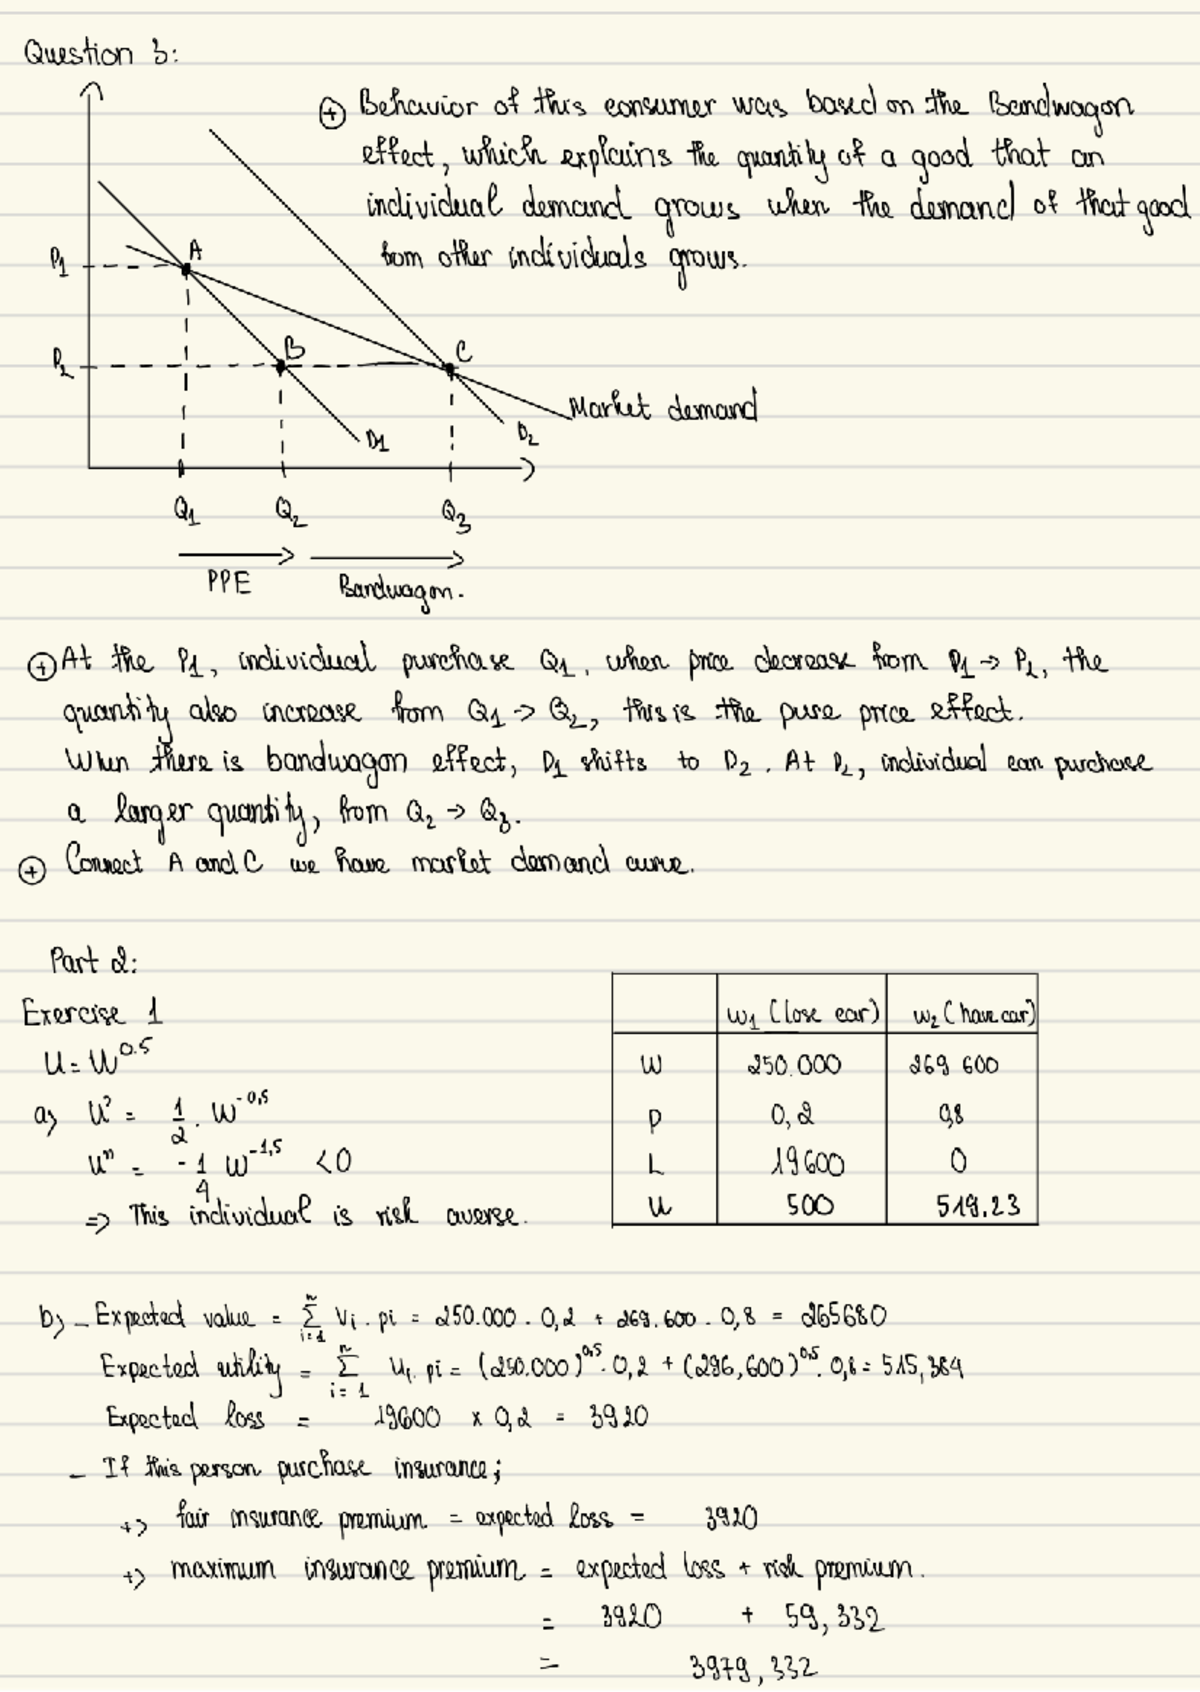 Question 3:
⊕ Behavior of this consumer was based on the Bandwagon
effect, which explains the quantity of a good that an
individual demand grows when the demand of that good
from other individuals grows.
P1
A
P2
B
C
Market demand
D1
D2
Q1 Q2 Q3
PPE Bandwagon.
⊕ At the P1, individual purchase Q1, when price decrease from P1 → P2, the
quantity also increase from Q1 → Q2, this is the pure price effect.
When there is bandwagon effect, D1 shifts to D2. At P2, individual can purchase
a larger quantity, from Q2 → Q3.
⊕ Connect A and C we have market demand curve.
Part 2:
Exercise 1
U = W^0.5
a) U' = 1/2 . W^-0,5
U'' = -1/4 W^-1,5 < 0
=> This individual is risk averse.
w1 (lose car) w2 (have car)
W 250.000 269 600
P 0,2 0,8
L 19600 0
U 500 519.23
b) - Expected value = Σ(i=1, n) Vi . pi = 250.000 . 0,2 + 269.600 . 0,8 = 265680
Expected utility = Σ(i=1, n) Ui. pi = (250.000)^0,5 . 0,2 + (296,600)^0,5 . 0,8 = 515,384
Expected loss = 19600 x 0,2 = 3920
- If this person purchase insurance;
+> fair insurance premium = expected loss = 3920
+> maximum insurance premium = expected loss + risk premium.
= 3920 + 59,332
= 3979,332